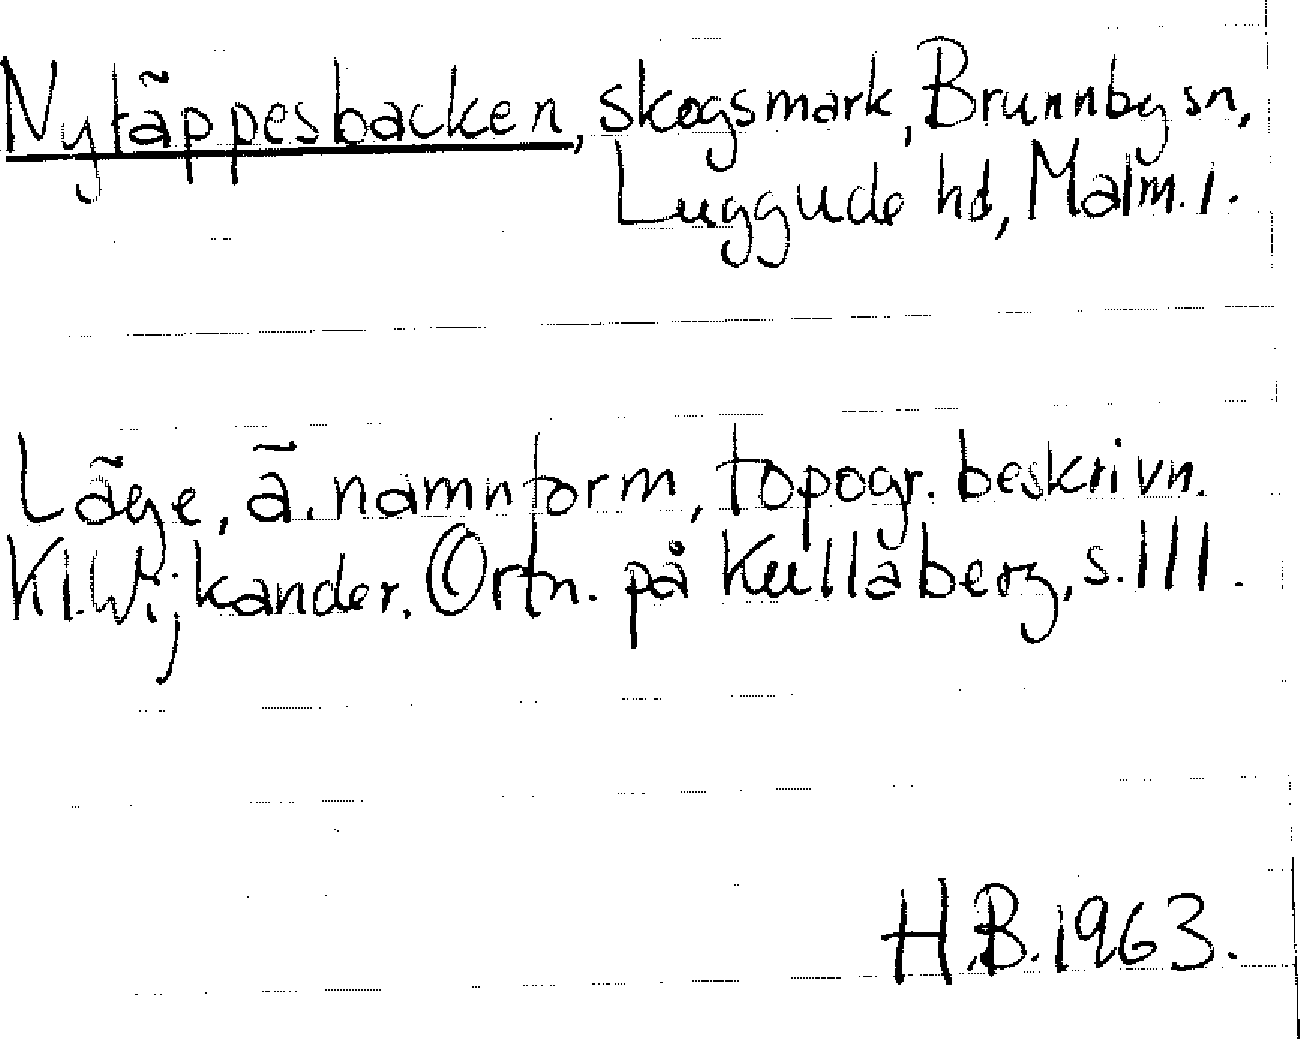 Nytäppesbacken, skogsmark, Brunnby sn,
Luggude hd, Malm. l.
Läge, ä. namnform, topogr. beskrivn.
Kl. Wi; kander. Ortn. på Kullaberg, s. 111.
H.B. 1963.